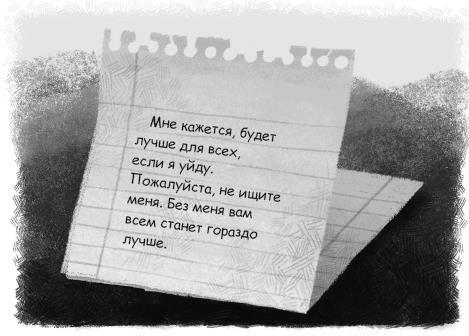 Мне кажется, будет
лучше для всех,
если я уйду.
Пожалуйста, не ищите
меня. Без меня вам
всем станет гораздо
лучше.